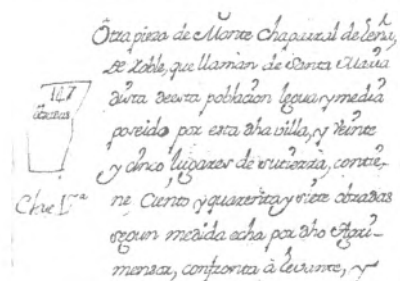 Otra pieza de Monte chaparral de leña,
de roble, que llaman de Santa Maria
dista deesta poblacion legua, y media
147
obradas
poseido por esta dha villa, y veinte
y cinco lugares de su tierra, contie-
Clase I.ª
ne Ciento y quarenta y siete obradas
segun medida echa por dho Agri-
mensor, confronta à levante, y